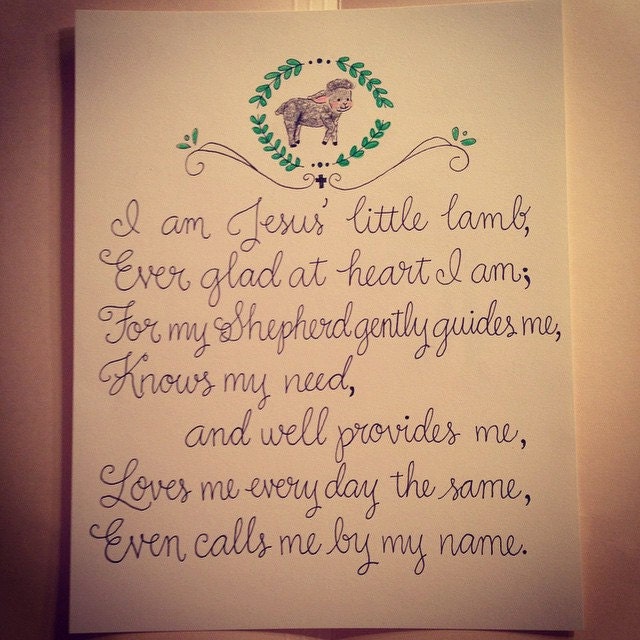 I am Jesus' little lamb,
Ever glad at heart I am;
For my Shepherd gently guides me,
Knows my need,
and well provides me,
Loves me every day the same,
Even calls me by my name.